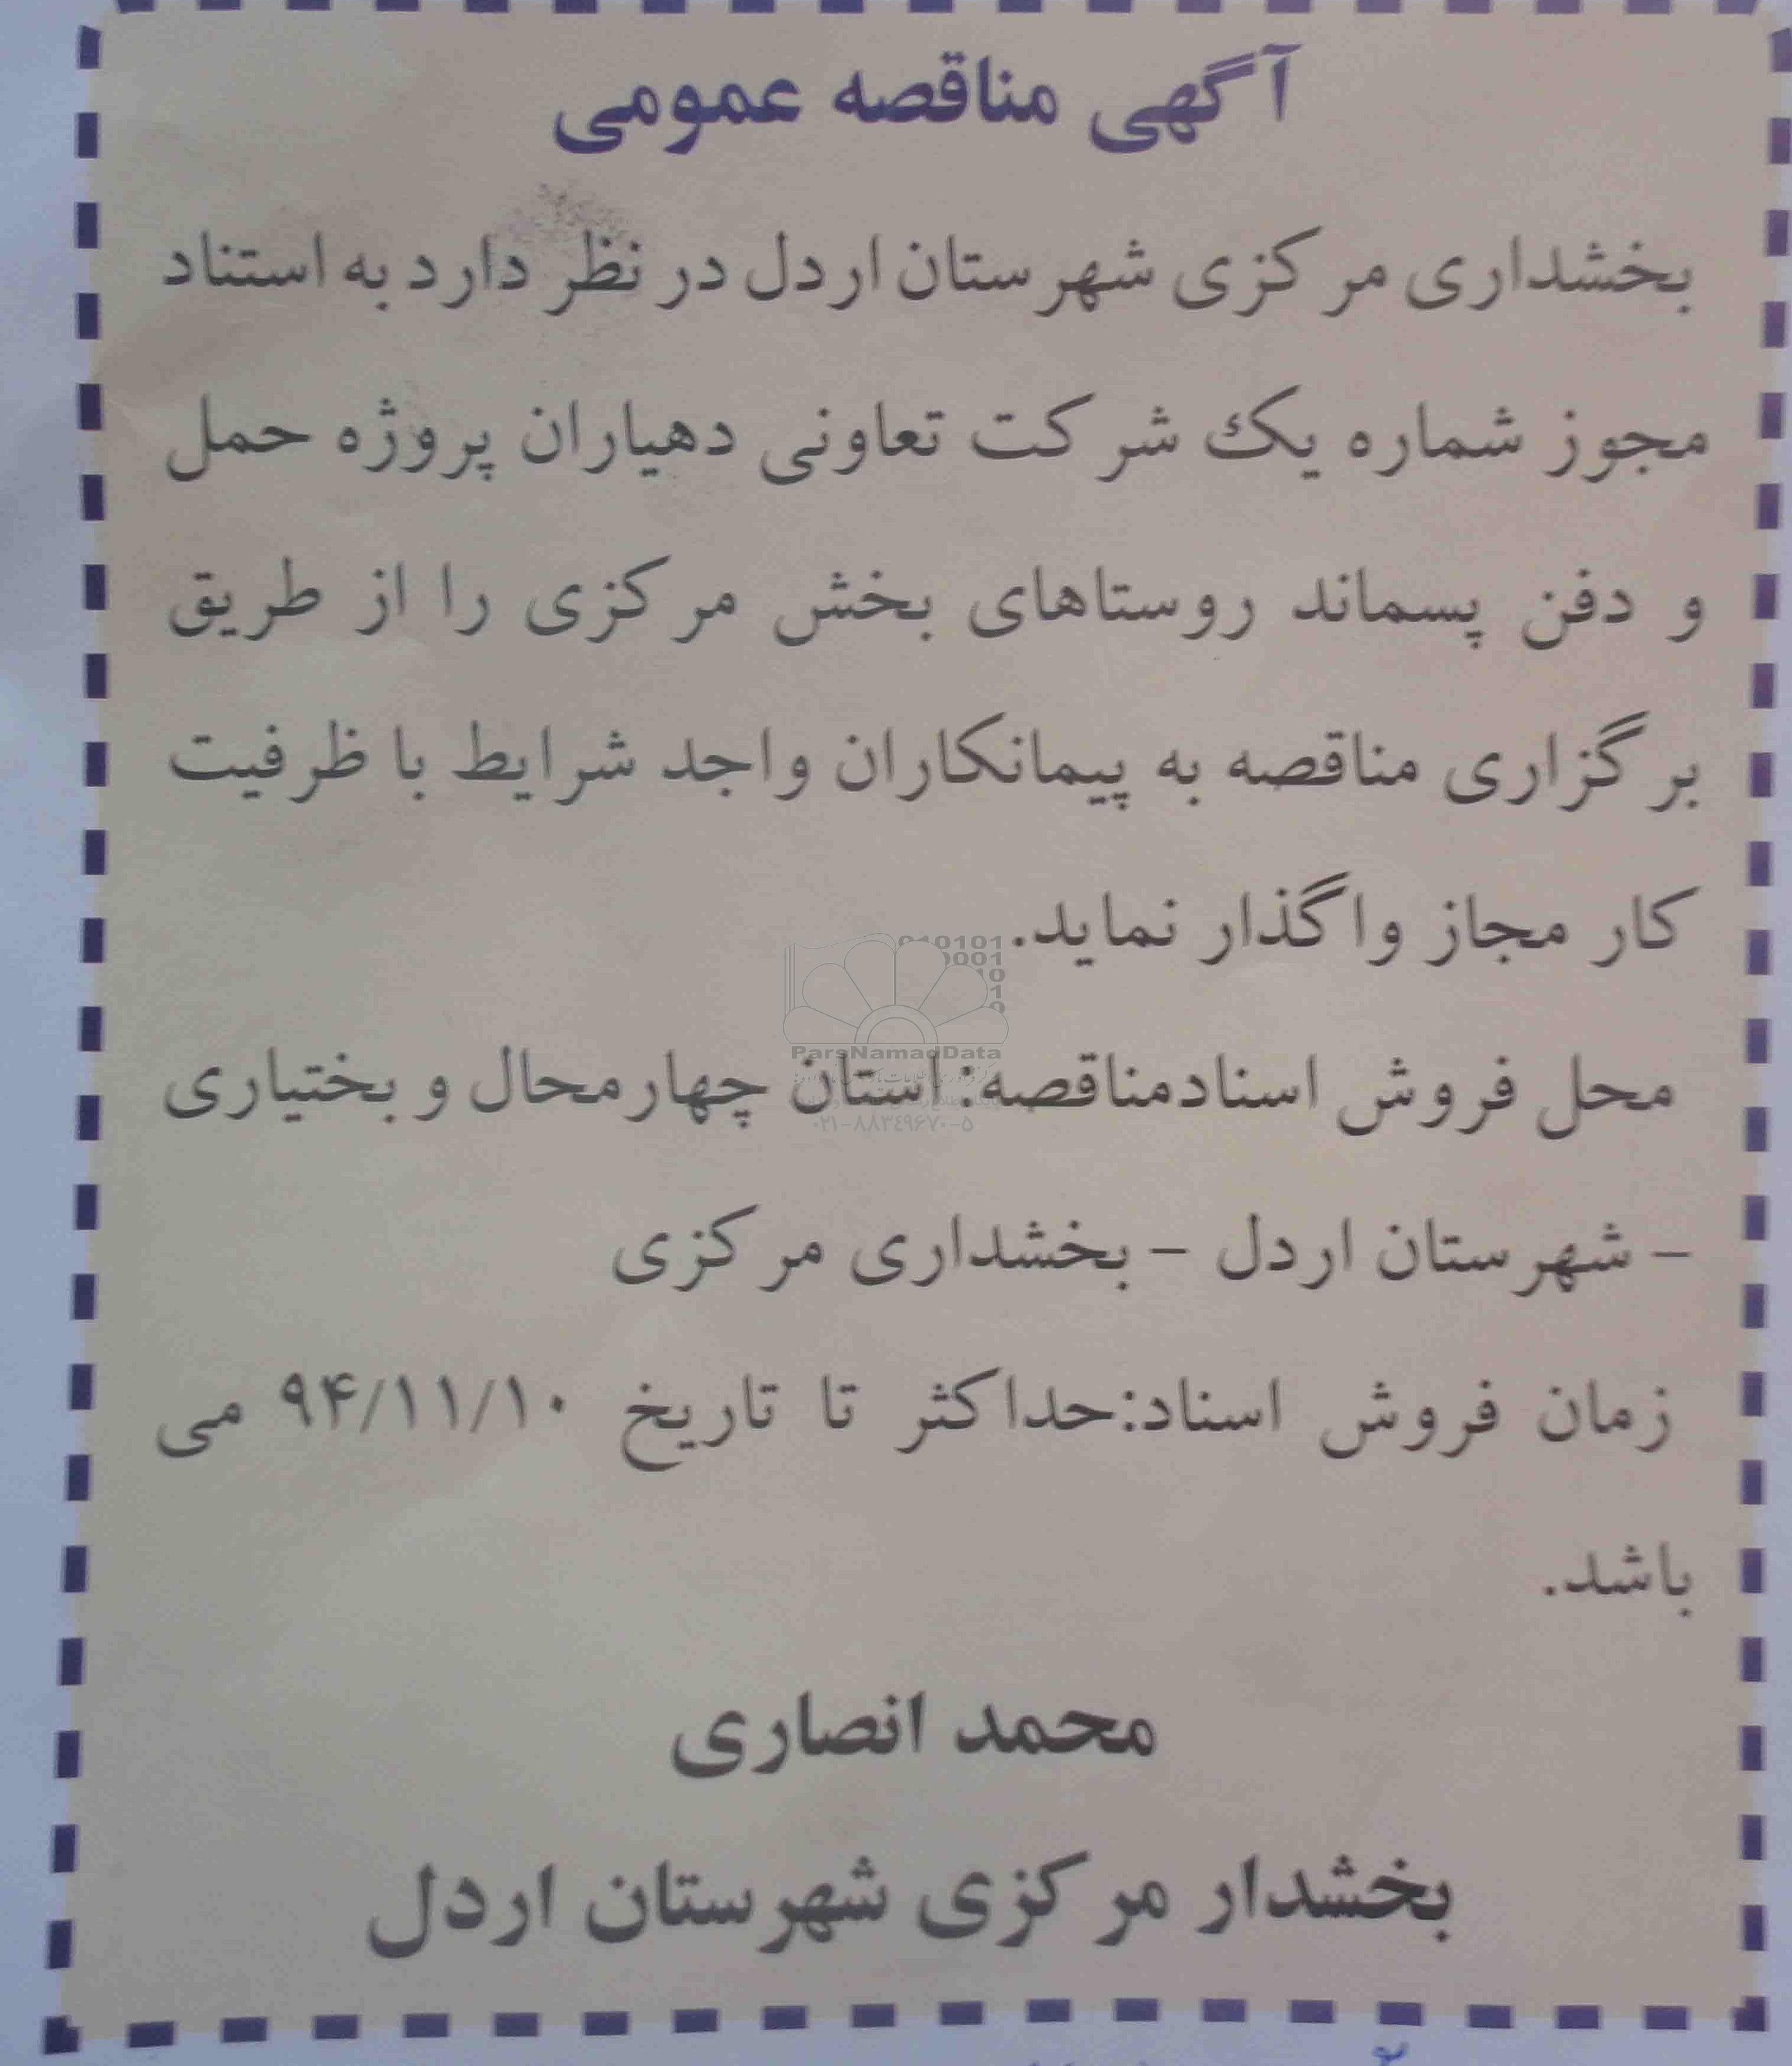 آگهی مناقصه عمومی
بخشداری مرکزی شهرستان اردل در نظر دارد به استناد
مجوز شماره یک شرکت تعاونی دهیاران پروژه حمل
و دفن پسماند روستاهای بخش مرکزی را از طریق
برگزاری مناقصه به پیمانکاران واجد شرایط با ظرفیت
کار مجاز واگذار نماید.
010101
0001
10
1
0
ParsNamadData
محل فروش اسنادمناقصه: استان چهارمحال و بختیاری
۰۲۱-۸۸۳۴۹۶۷۰-۵
- شهرستان اردل - بخشداری مرکزی
زمان فروش اسناد:حداکثر تا تاریخ ۹۴/۱۱/۱۰ می
باشد.
محمد انصاری
بخشدار مرکزی شهرستان اردل